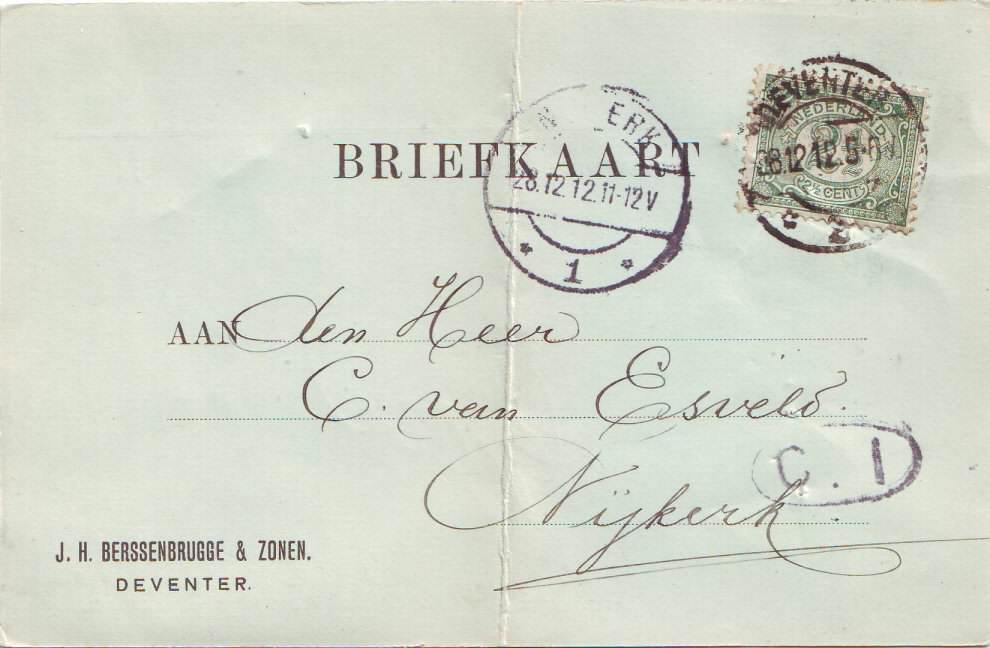 DEVENTER
NEDERLAND
2½ CENT
28.12.12.5-6V
2
BRIEFKAART
28.12.12.11-12V
1
AAN den Heer
C. van Esveld.
C. 1
Nijkerk
J. H. BERSSENBRUGGE & ZONEN.
DEVENTER.